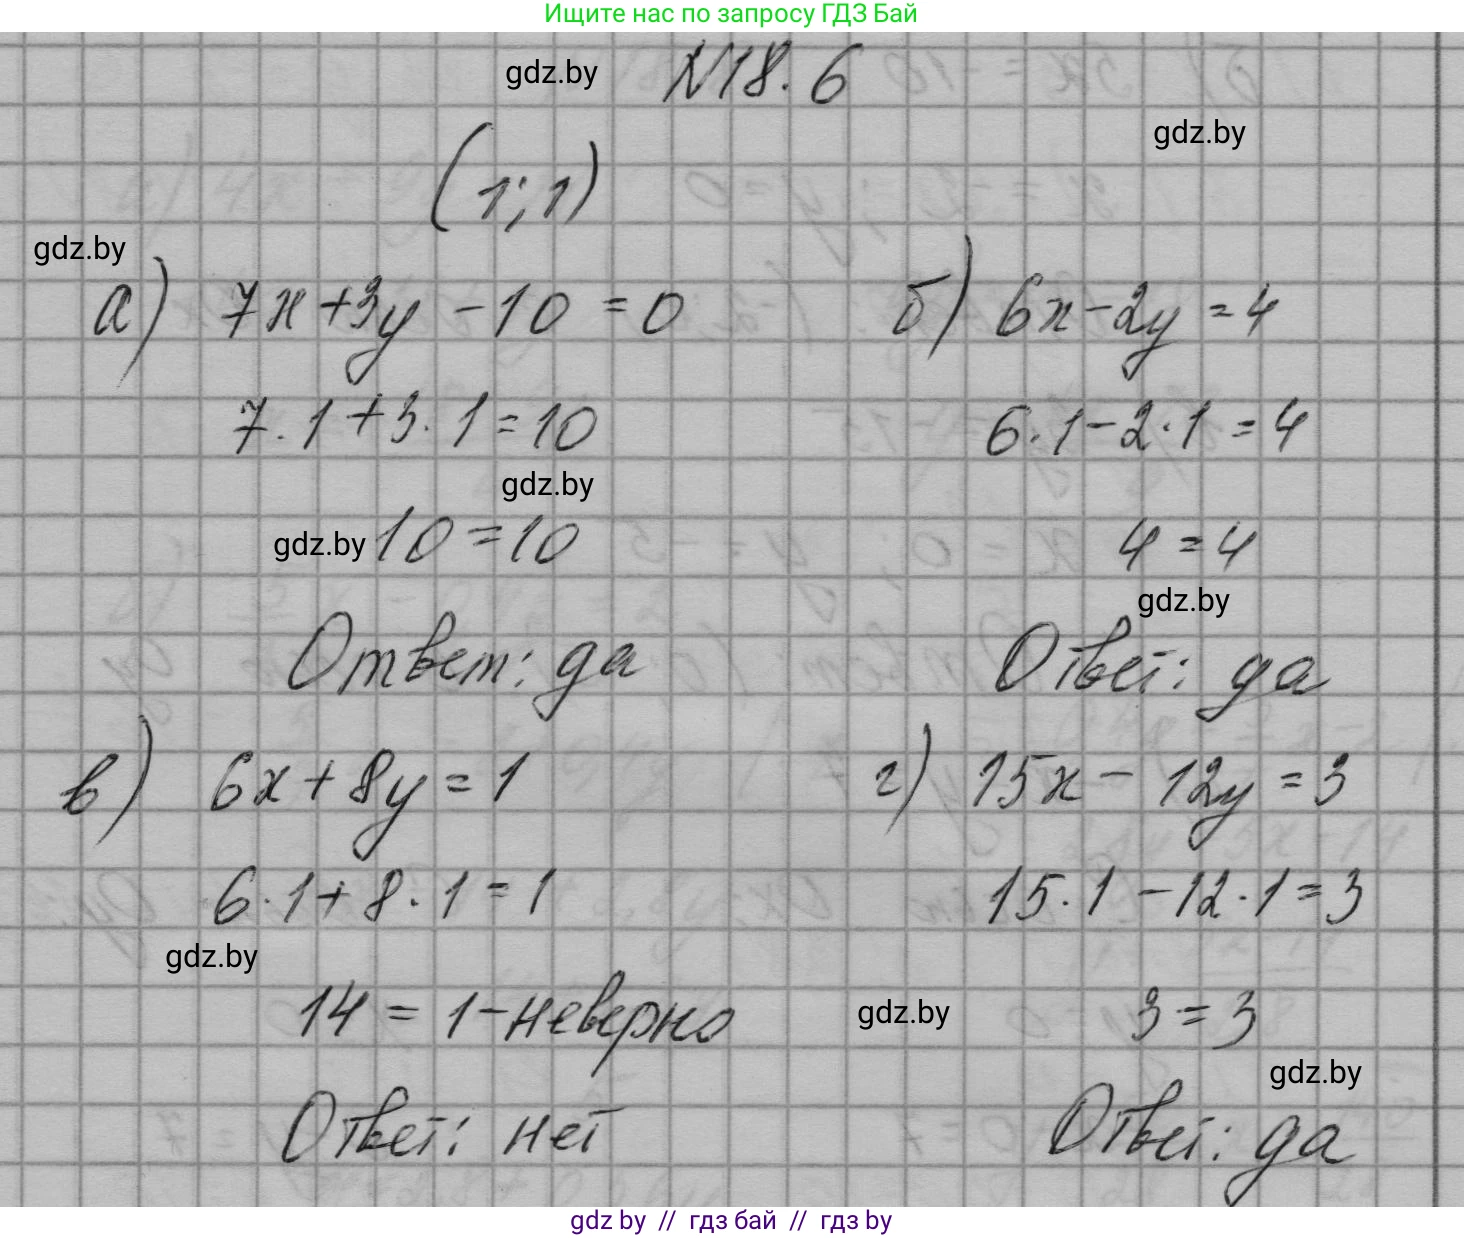 Ищите нас по запросу ГДЗ Бай
gdz.by
N18.6
gdz.by
(1;1)
gdz.by
а) 7x+3y-10=0
б) 6x-2y=4
7·1+3·1=10
6·1-2·1=4
gdz.by
gdz.by
10=10
4=4
gdz.by
Ответ: да
Ответ: да
в) 6x+8y=1
г) 15x-12y=3
6·1+8·1=1
15·1-12·1=3
gdz.by
14=1-неверно
gdz.by
3=3
gdz.by
Ответ: нет
Ответ: да
gdz by // гдз бай // гдз by